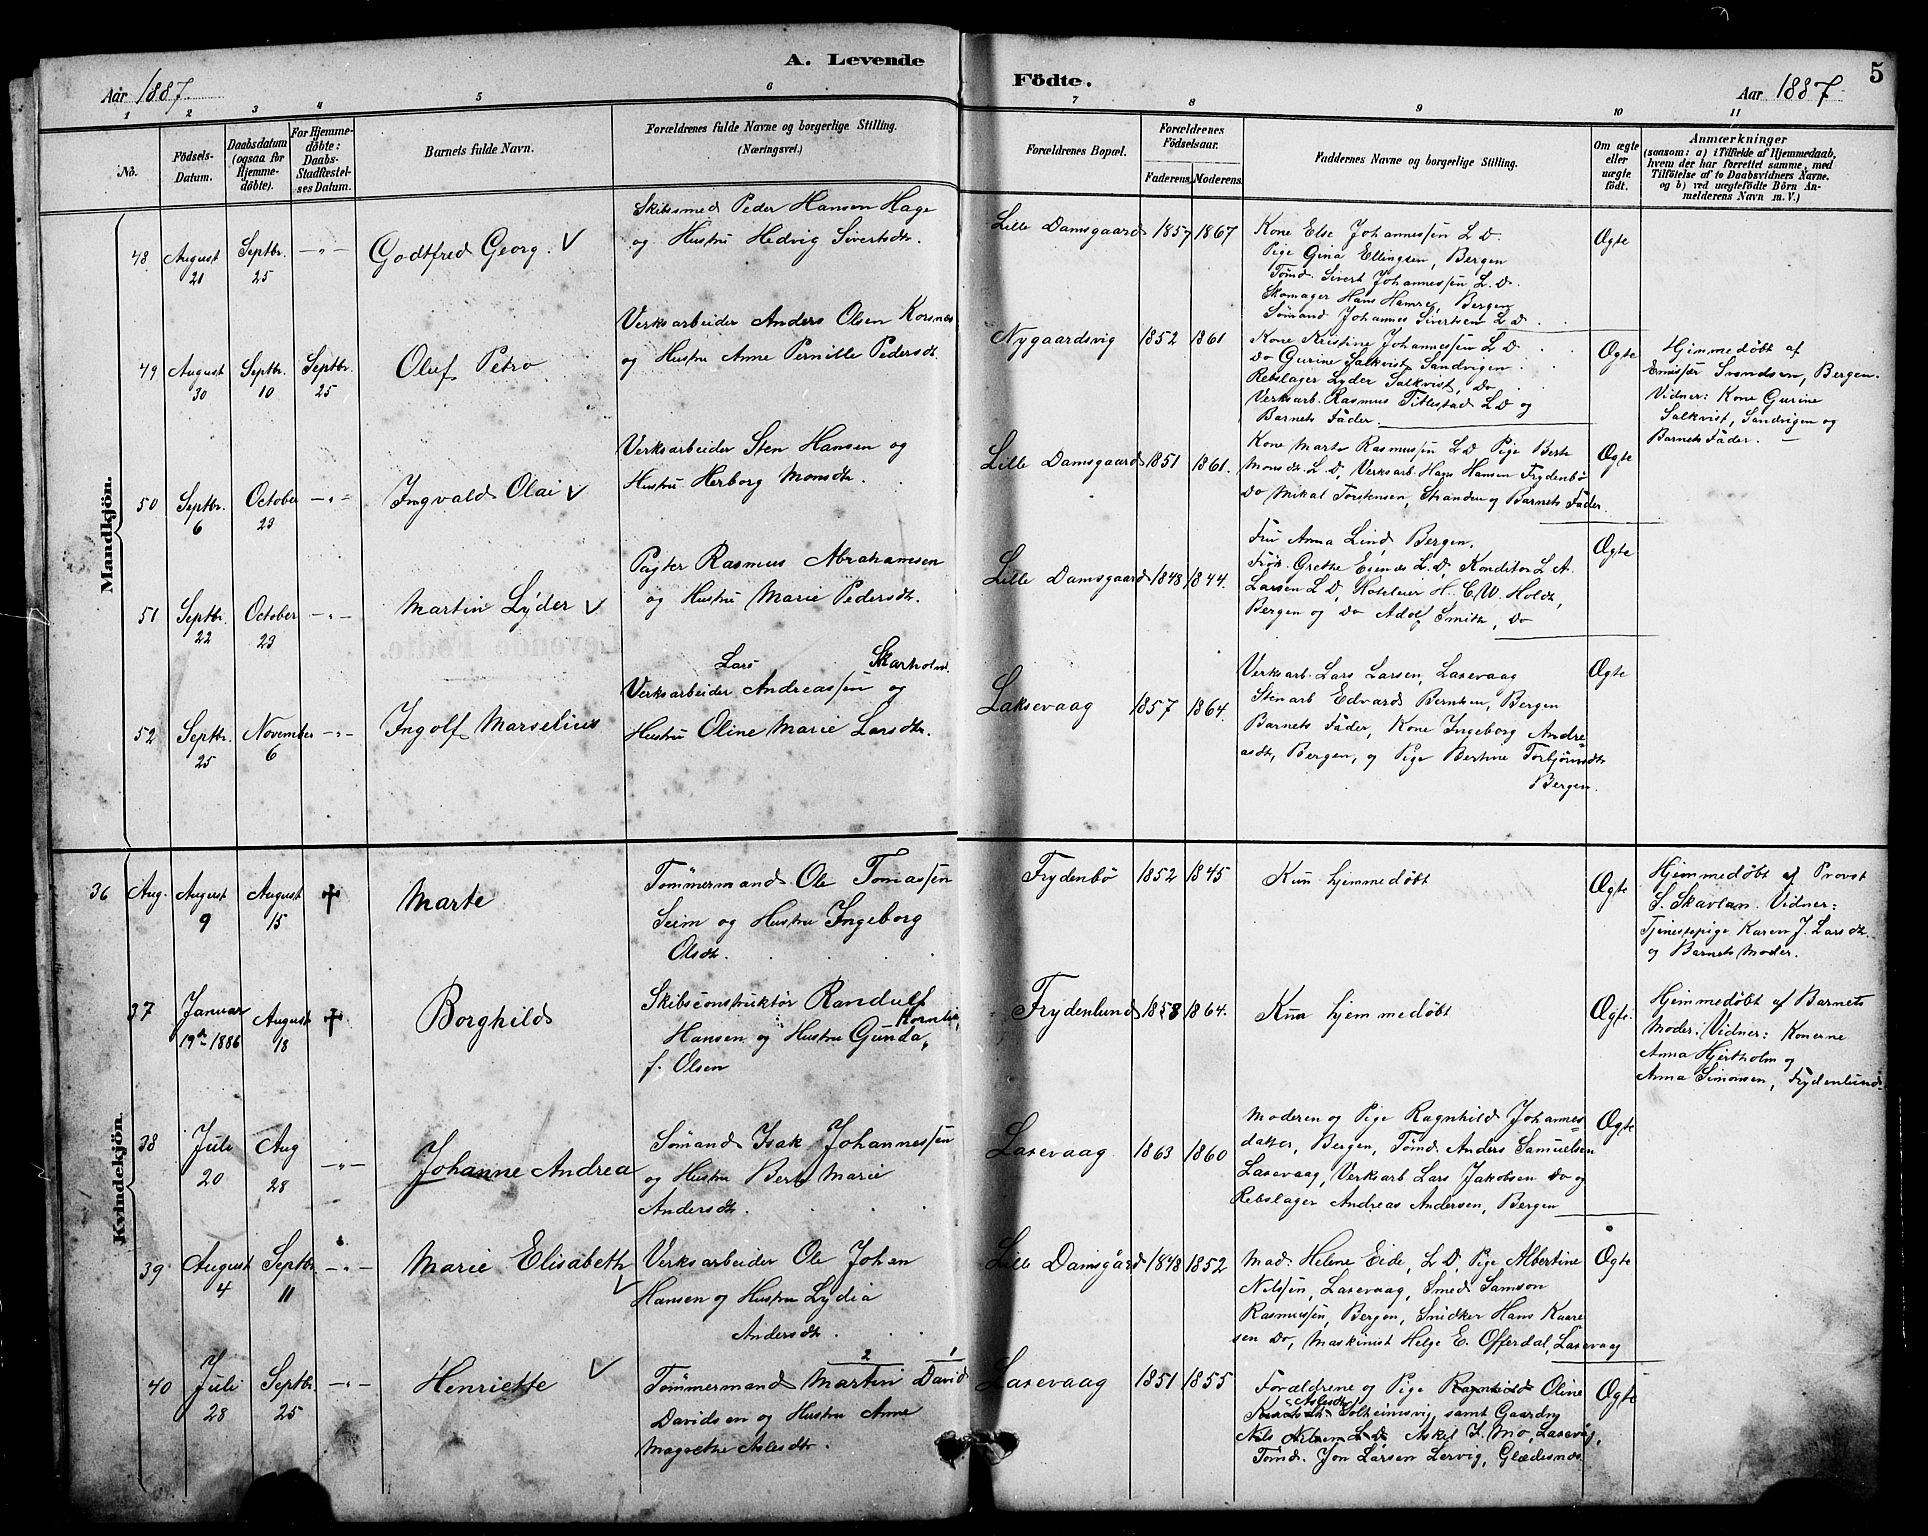 A. Levende Födte.
5
Aar 1887.
Aar 1887
1 2 3 4 5 6 7 8 9 10 11
No.
Födsels-
Datum.
Daabsdatum
(ogsaa for
Hjemme-
döbte).
For Hjemme-
döbte:
Daabs-
Stadfæstel-
ses Datum.
Barnets fulde Navn.
Forældrenes fulde Navne og borgerlige Stilling.
(Næringsvei.)
Forældrenes Bopæl.
Forældrenes
Födselsaar.
Faderens.
Moderens.
Faddernes Navne og borgerlige Stilling.
Om ægte
eller
uægte
födt.
Anmærkninger
(saasom: a) i Tilfælde af Hjemmedaab,
hvem der har forrettet samme, med
Tilföielse af to Daabsvidners Navne.
og b) ved uægtefödte Börn An-
melderens Navn m. V.)
Mandkjön.
48.
August
21
Septbr.
25
-"-
Godtfred Georg. V
Skibsmed Peder Hansen Hage
og Hustru Hedvig Sivertsdtr.
Lille Damsgaard
1857
1867
Kone Else Johannessen L D.
Pige Gina Ellingsen, Bergen
Tømd. Sivert Johannessen L. D.
Skomager Hans Hamre, Bergen
Sömand Johannes Sivertsen L D.
Ægte
49
August
30
Septbr.
10
Septbr.
25
Oluf Petro
Verksarbeider Anders Olsen Korsnes
og Hustru Anne Pernille Pedersdt.
Nygaardsvig
1852
1861
Kone Kristine Johannessen L D
Do Gurine Salkvist, Sandvigen
Rebslager Lyder Salkvist, Do
Verksarb. Rasmus Titlestad L D og
Barnets Fader.
Ægte
Hjemmedøbt af
Emissær Svendsen, Bergen.
Vidner: Kone Gurine
Salkvist, Sandvigen og
Barnets Fader. —
50
Septbr.
6
October
23
-"-
Ingvald Olai V
Verksarbeider Sten Hansen og
Hustru Herborg Monsdtr.
Lille Damsgaard
1851
1861.
Kone Marte Rasmussen L D Pige Berte
Monsdtr. L D, Verksarb. Hans Hansen Frydenbö
Do Mikal Torstensen, Stranden og Barnets Fader.
Ægte
51
Septbr.
22
October
23
-"-
Martin Lyder V
Pagter Rasmus Abrahamsen
og Hustru Marie Pedersdt.
Lille Damsgaard
1848
1844.
Fru Anna Lind Bergen.
Frøk. Grethe L D, Konditor L A.
Larsen L D, Hoteleier H. C. W. Holdt,
Bergen og Do Adolf Smith, Do
Ægte
52
Septbr.
25
November
6
-"-
Ingolf Marselius
Lars Skarholm.
Verksarbeider Andreassen og
Hustru Oline Marie Larsdtr.
Laksevaag
1857
1864.
Verksarb. Lars Larsen, Laxevaag
Stenarb Edvard Berntsen, Bergen
Barnets Fader, Kone Ingeborg Andre=
asdt, Bergen, og Pige Bertine Torbjörnsdtr
Bergen.
Ægte
Kvindekjön.
36
Aug.
August
9
August
15
✝
Marte
Tömmermand Ole Tomassen
Seim og Hustru Ingeborg
Olsdtr.
Frydenbö
1852
1845
Kun hjemmedøbt
Ægte
Hjemmedøbt af Provst
S. Skavlan. Vidner:
Tjenestepige Karen J. Larsdt.
og Barnets Moder.
37
Januar
19de 1886
August
18
✝
Borghild
Skibsconstruktör Randulf
Hansen og Hustru Gunda Kornelia,
f. Olsen
Frydenlund
1858
1864.
Kun hjemmedøbt
Ægte.
Hjemmedøbt af Barnets
Moder. Vidner: Konerne
Anna Hjertholm og
Anna Simonsen, Frydenlund.
38
Juli
20
Aug
28
-"-
Johanne Andrea
Sömand Isak Johannessen
og Hustru Berte Marie
Andersdt.
Laxevaag
1863
1860
Moderen og Pige Ragnhild Johannes=
datter, Bergen, Tömd. Anders Samuelsen
Laxevaag, Verksarb Lars Jakobsen Do og
Rebslager Andreas Andersen, Bergen
Ægte
39
August
4
Septbr.
11
-"-
Marie Elisabeth V
Verksarbeider Ole Johan
Hansen og Hustru Lydia
Andersdt.
Lille Damsgård
1848
1852
Mad. Helene Eide, L D, Pige Albertine
Nilssen, Laxevaag, Smed Samson
Rasmussen, Bergen, Snidker Hans Kaare
sen Do, Maskinist Helge E. Offerdal, Laxevaag
Ægte
40
Juli
28
Septbr.
25
-"-
Henriette V
2 1
Tömmermand Martin David
Davidsen og Hustru Anne
Magrethe Aslesdtr.
Laxevaag
1851
1855
Forældrene og Pige Ragnhild Oline
Aslesdtr Solheimsvig samt Gaardm
Nils Nilsen L D Askel J. Mo, Laxevåg,
Tömd. Jon Larsen Lervig, Glædesnes.
Ægte